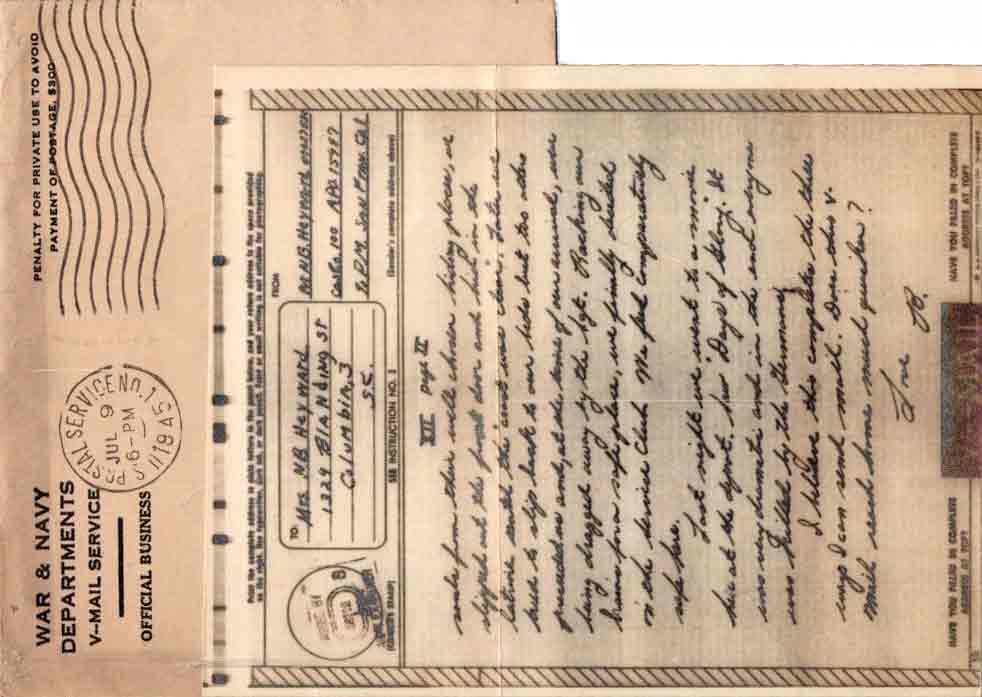 WAR & NAVY
DEPARTMENTS
V-MAIL SERVICE
OFFICIAL BUSINESS
PENALTY FOR PRIVATE USE TO AVOID
PAYMENT OF POSTAGE, $300
U.S. POSTAL SERVICE No. 1
JUL 9
6-PM
1945
Print the complete address in plain letters in the panel below, and your return address in the space provided
on the right. Use typewriter, dark ink, or dark pencil. Faint or small writing is not suitable for photographing.
TO:
Mrs NB Heyward
1329 Blanding St
Columbia, 3
S.C.
FROM
NB Heyward
APO 15987
c/o P.M. San Fran Cal
(Sender's complete address above)
(CENSOR'S STAMP)
SEE INSTRUCTION NO. 2
VII page II
under from their well chosen hiding places, we
slipped out the front door and hid in the
latrine until the coast was clear. Later we
tried to slip back to our beds but two
preceeded us and, at the time of our arrival, were
being dragged away by the legt. Racking our
brains for a safe place, we finally decided
on the Service Club. We feel comparatively
safe here.
Last night we went to a movie
here at the depot. Saw "Days of Glory." It
was very dramatic and in the end everyone
was killed by the Germans.
I believe this completes the three
ways I can send mail. Does this V-
Mail reach home much quicker?
Love
B.
HAVE YOU FILLED IN COMPLETE
ADDRESS AT TOP?
V-MAIL
HAVE YOU FILLED IN COMPLETE
ADDRESS AT TOP?